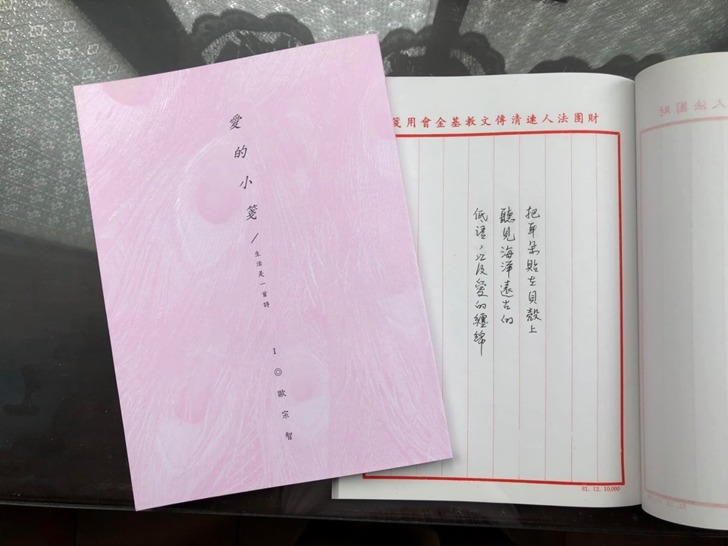 愛的小箋/生活是一首詩
1◎歐宗智
財團法人連清傳文教基金會用箋
把耳朵貼在貝殼上
聽見海洋遠古的
低語,以及愛的纏綿
81. 12. 10,000